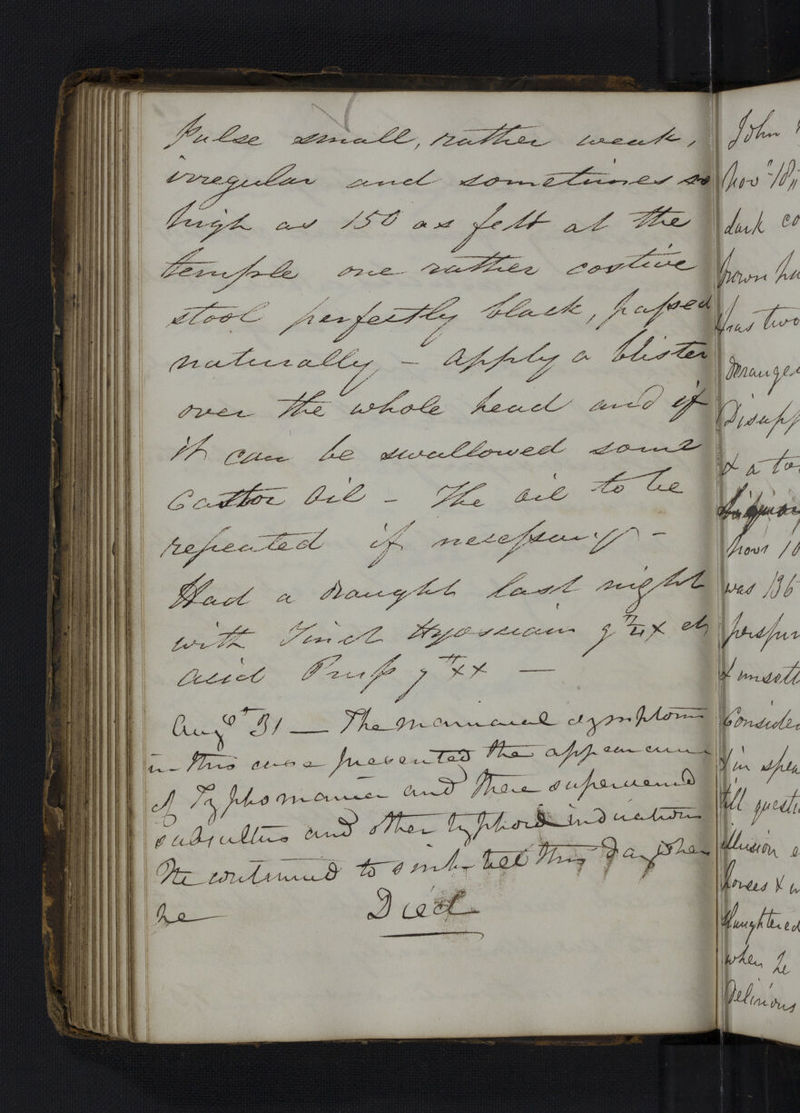 Pulse small, rather weak,
irregular and sometimes so
high as 150 as felt at the
temple one rather costive
stool perfectly black, passed
naturally – apply a blister
over the whole head and if
it can be swallowed some
Castor Oil – The oil to be
repeated if necessary –
Had a draught last night
with Tinct Hyosciam
acid Pruss –
Augst 31 — The maniacal symptoms
in this case presented the appearance
of Typhomania and there supervened
subsultus and other typhoid indications
He continued to sink till this day when
he Died
John
Novr 18
dark co
brown ha
has two
Derange
Disapp
& a
Novr 10
was 136
perspir
& unsett
Consider
& in spea
till questi
illusion
horses &
slaughtered
when he
Delirious